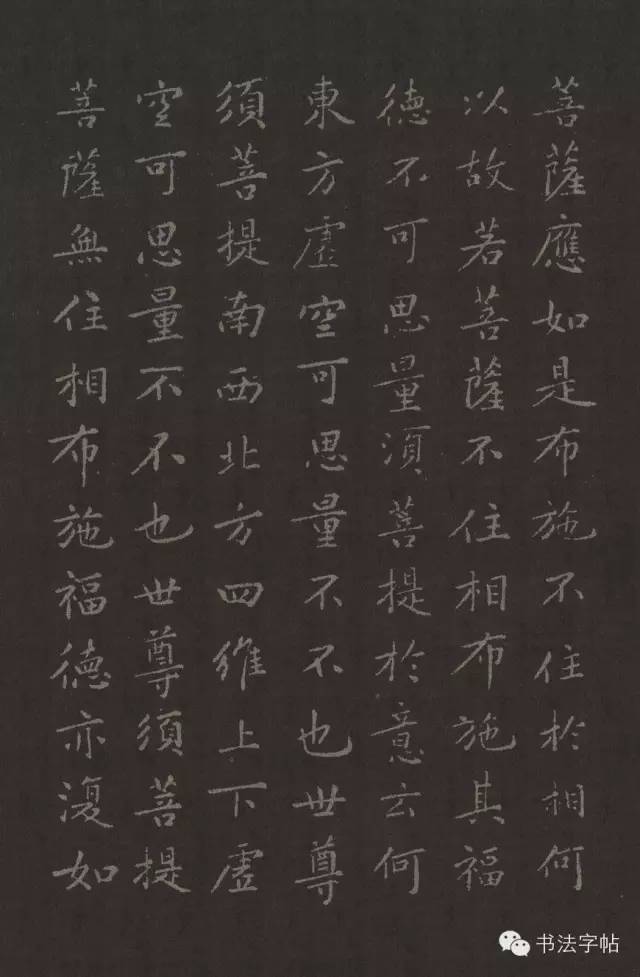 菩薩應如是布施不住於相何
以故若菩薩不住相布施其福
德不可思量須菩提於意云何
東方虛空可思量不不也世尊
須菩提南西北方四維上下虛
空可思量不不也世尊須菩提
菩薩無住相布施福德亦復如
书法字帖